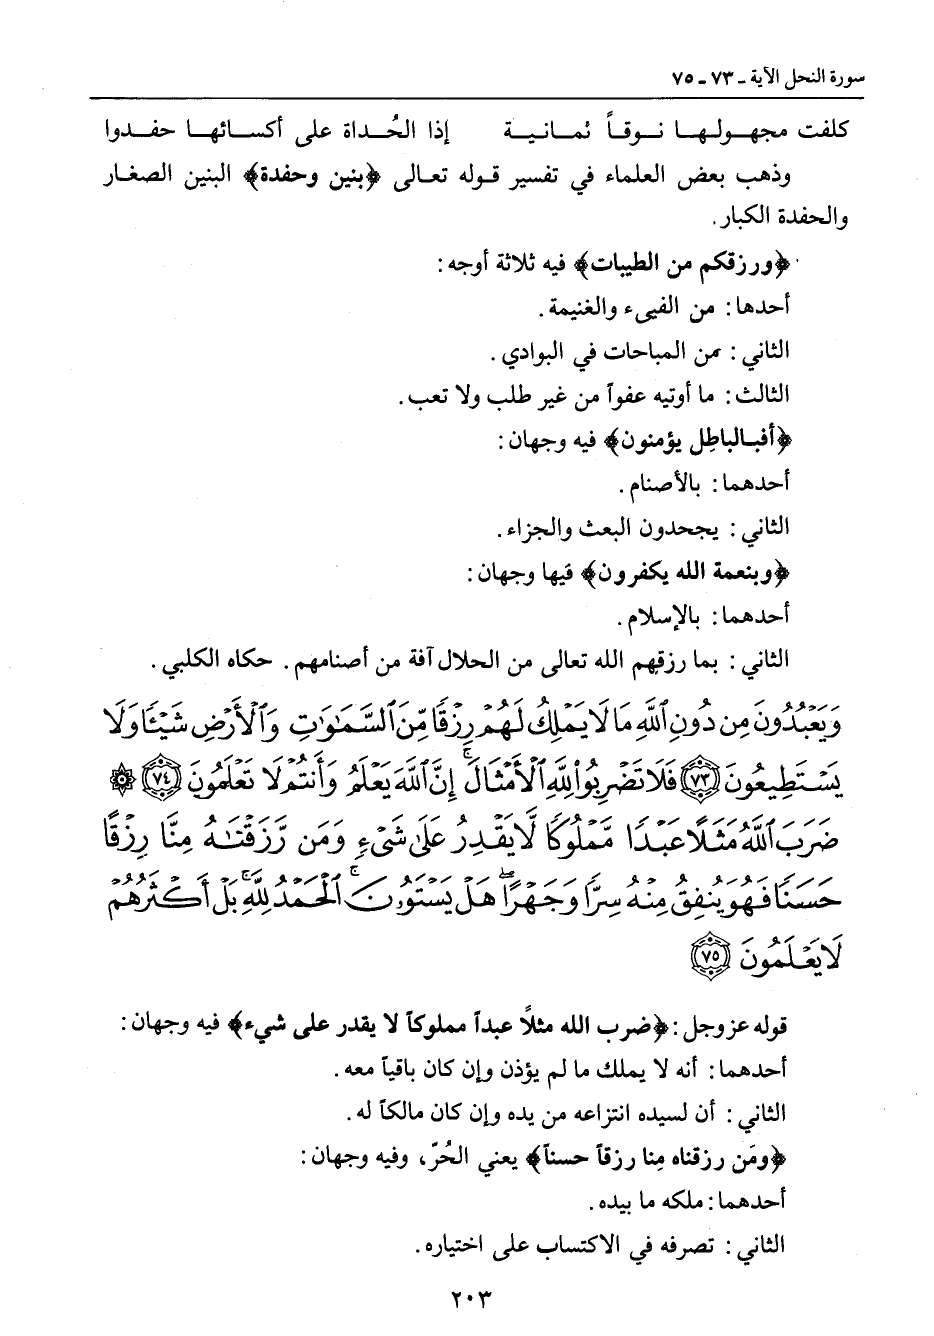 سورة النحل الآية ـ ٧٣ ـ ٧٥
كلفت مجهولها نوقاً ثمانية إذا الحُداة على أكسائها حفدوا
وذهب بعض العلماء في تفسير قوله تعالى ﴿بنين وحفدة﴾ البنين الصغار
والحفدة الكبار.
﴿ورزقكم من الطيبات﴾ فيه ثلاثة أوجه:
أحدها: من الفيىء والغنيمة.
الثاني: من المباحات في البوادي.
الثالث: ما أوتيه عفواً من غير طلب ولا تعب.
﴿أفبالباطِل يؤمنون﴾ فيه وجهان:
أحدهما: بالأصنام.
الثاني: يجحدون البعث والجزاء.
﴿وبنعمة الله يكفرون﴾ فيها وجهان:
أحدهما: بالإسلام.
الثاني: بما رزقهم الله تعالى من الحلال آفة من أصنامهم. حكاه الكلبي.
وَيَعْبُدُونَ مِن دُونِ ٱللَّهِ مَا لَا يَمْلِكُ لَهُمْ رِزْقًا مِّنَ ٱلسَّمَٰوَٰتِ وَٱلْأَرْضِ شَيْـًٔا وَلَا
يَسْتَطِيعُونَ ٧٣ فَلَا تَضْرِبُوا۟ لِلَّهِ ٱلْأَمْثَالَ ۚ إِنَّ ٱللَّهَ يَعْلَمُ وَأَنتُمْ لَا تَعْلَمُونَ ٧٤ ۞
ضَرَبَ ٱللَّهُ مَثَلًا عَبْدًا مَّمْلُوكًا لَّا يَقْدِرُ عَلَىٰ شَىْءٍ وَمَن رَّزَقْنَٰهُ مِنَّا رِزْقًا
حَسَنًا فَهُوَ يُنفِقُ مِنْهُ سِرًّا وَجَهْرًا ۖ هَلْ يَسْتَوُۥنَ ۚ ٱلْحَمْدُ لِلَّهِ ۚ بَلْ أَكْثَرُهُمْ
لَا يَعْلَمُونَ ٧٥
قوله عز وجل: ﴿ضرب الله مثلاً عبداً مملوكاً لا يقدر على شيء﴾ فيه وجهان:
أحدهما: أنه لا يملك ما لم يؤذن وإن كان باقياً معه.
الثاني: أن لسيده انتزاعه من يده وإن كان مالكاً له.
﴿ومَن رزقناه مِنا رزقاً حسناً﴾ يعني الحُرّ، وفيه وجهان:
أحدهما: ملكه ما بيده.
الثاني: تصرفه في الاكتساب على اختياره.
٢٠٣